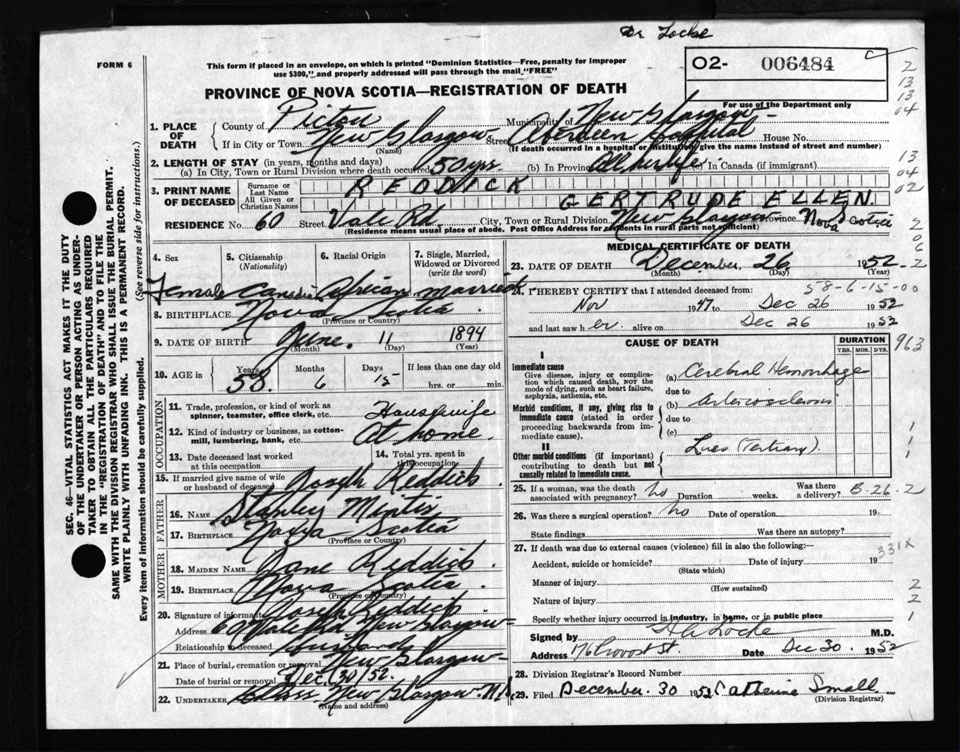 Dr Locke
FORM 6
This form if placed in an envelope, on which is printed "Dominion Statistics—Free, penalty for improper
use $300," and properly addressed will pass through the mail "FREE"
02- 006484
PROVINCE OF NOVA SCOTIA—REGISTRATION OF DEATH
For use of the Department only
1. PLACE OF DEATH
County of Pictou Municipality of New Glasgow
If in City or Town New Glasgow Street Aberdeen Hospital House No.
(Name) (If death occurred in a hospital or institution, give the name instead of street and number)
2. LENGTH OF STAY (in years, months and days)
(a) In City, Town or Rural Division where death occurred 50 yrs. (b) In Province All her life. (c) In Canada (if immigrant)
3. PRINT NAME OF DECEASED
Surname or Last Name REDDICK
All Given or Christian Names GERTRUDE ELLEN.
RESIDENCE No. 60 Street Vale Rd. City, Town or Rural Division New Glasgow Province Nova Scotia
(Residence means usual place of abode. Post Office Address for residents in rural parts not sufficient)
4. Sex
5. Citizenship (Nationality)
6. Racial Origin
7. Single, Married, Widowed or Divorced (write the word)
Female Canadian African Married
8. BIRTHPLACE Nova Scotia
(Province or Country)
9. DATE OF BIRTH June. 11 1894
(Month) (Day) (Year)
10. AGE in Years 58 Months 6 Days 15 If less than one day old
hrs. or min.
OCCUPATION
11. Trade, profession, or kind of work as spinner, teamster, office clerk, etc. Housewife
12. Kind of industry or business, as cotton-mill, lumbering, bank, etc. At home.
13. Date deceased last worked at this occupation
14. Total yrs. spent in this occupation
15. If married give name of wife or husband of deceased Joseph Reddick
FATHER
16. NAME Stanley Mintis
17. BIRTHPLACE Nova Scotia
(Province or Country)
MOTHER
18. MAIDEN NAME Jane Reddick.
19. BIRTHPLACE Nova Scotia.
(Province or Country)
20. Signature of informant Joseph Reddick.
Address 60 Vale Rd New Glasgow
Relationship to deceased Husband
21. Place of burial, cremation or removal New Glasgow
Date of burial or removal Dec. 30/52.
22. UNDERTAKER New Glasgow. N.S.
(Name and address)
MEDICAL CERTIFICATE OF DEATH
23. DATE OF DEATH December 26 1952
(Month) (Day) (Year)
58-6-15-00
24. I HEREBY CERTIFY that I attended deceased from:
Nov 1947 to Dec 26 1952
and last saw her alive on Dec 26 1952
CAUSE OF DEATH
DURATION
YRS. MOS. DYS.
I
Immediate cause
Give disease, injury or complication which caused death, NOT the mode of dying, such as heart failure, asphyxia, asthenia, etc.
(a) Cerebral Hemorrhage
due to
Morbid conditions, if any, giving rise to immediate cause (stated in order proceeding backwards from immediate cause).
(b) Arteriosclerosis
due to
(c)
II
Other morbid conditions (if important) contributing to death but not causally related to immediate cause.
Lues (Tertiary)
25. If a woman, was the death associated with pregnancy? No Duration weeks. Was there a delivery? B-26-2
26. Was there a surgical operation? No Date of operation 19
State findings Was there an autopsy?
27. If death was due to external causes (violence) fill in also the following:—
Accident, suicide or homicide? Date of injury 19
331X
(State which)
Manner of injury
(How sustained)
Nature of injury
Specify whether injury occurred in industry, in home, or in public place
Signed by Locke M.D.
Address 176 Provost St. Date Dec 30. 1952
28. Division Registrar's Record Number
29. Filed December. 30 1952 Catherine Small.
(Division Registrar)
SEC. 46—VITAL STATISTICS ACT MAKES IT THE DUTY
OF THE UNDERTAKER OR PERSON ACTING AS UNDER-
TAKER TO OBTAIN ALL THE PARTICULARS REQUIRED
IN THE "REGISTRATION OF DEATH" AND TO FILE THE
SAME WITH THE DIVISION REGISTRAR WHO SHALL ISSUE THE BURIAL PERMIT.
WRITE PLAINLY WITH UNFADING INK. THIS IS A PERMANENT RECORD.
(See reverse side for instructions.)
Every item of information should be carefully supplied.
2
13
13
04
13
04
02
2
0
6
2
963
1
1
2
2
1